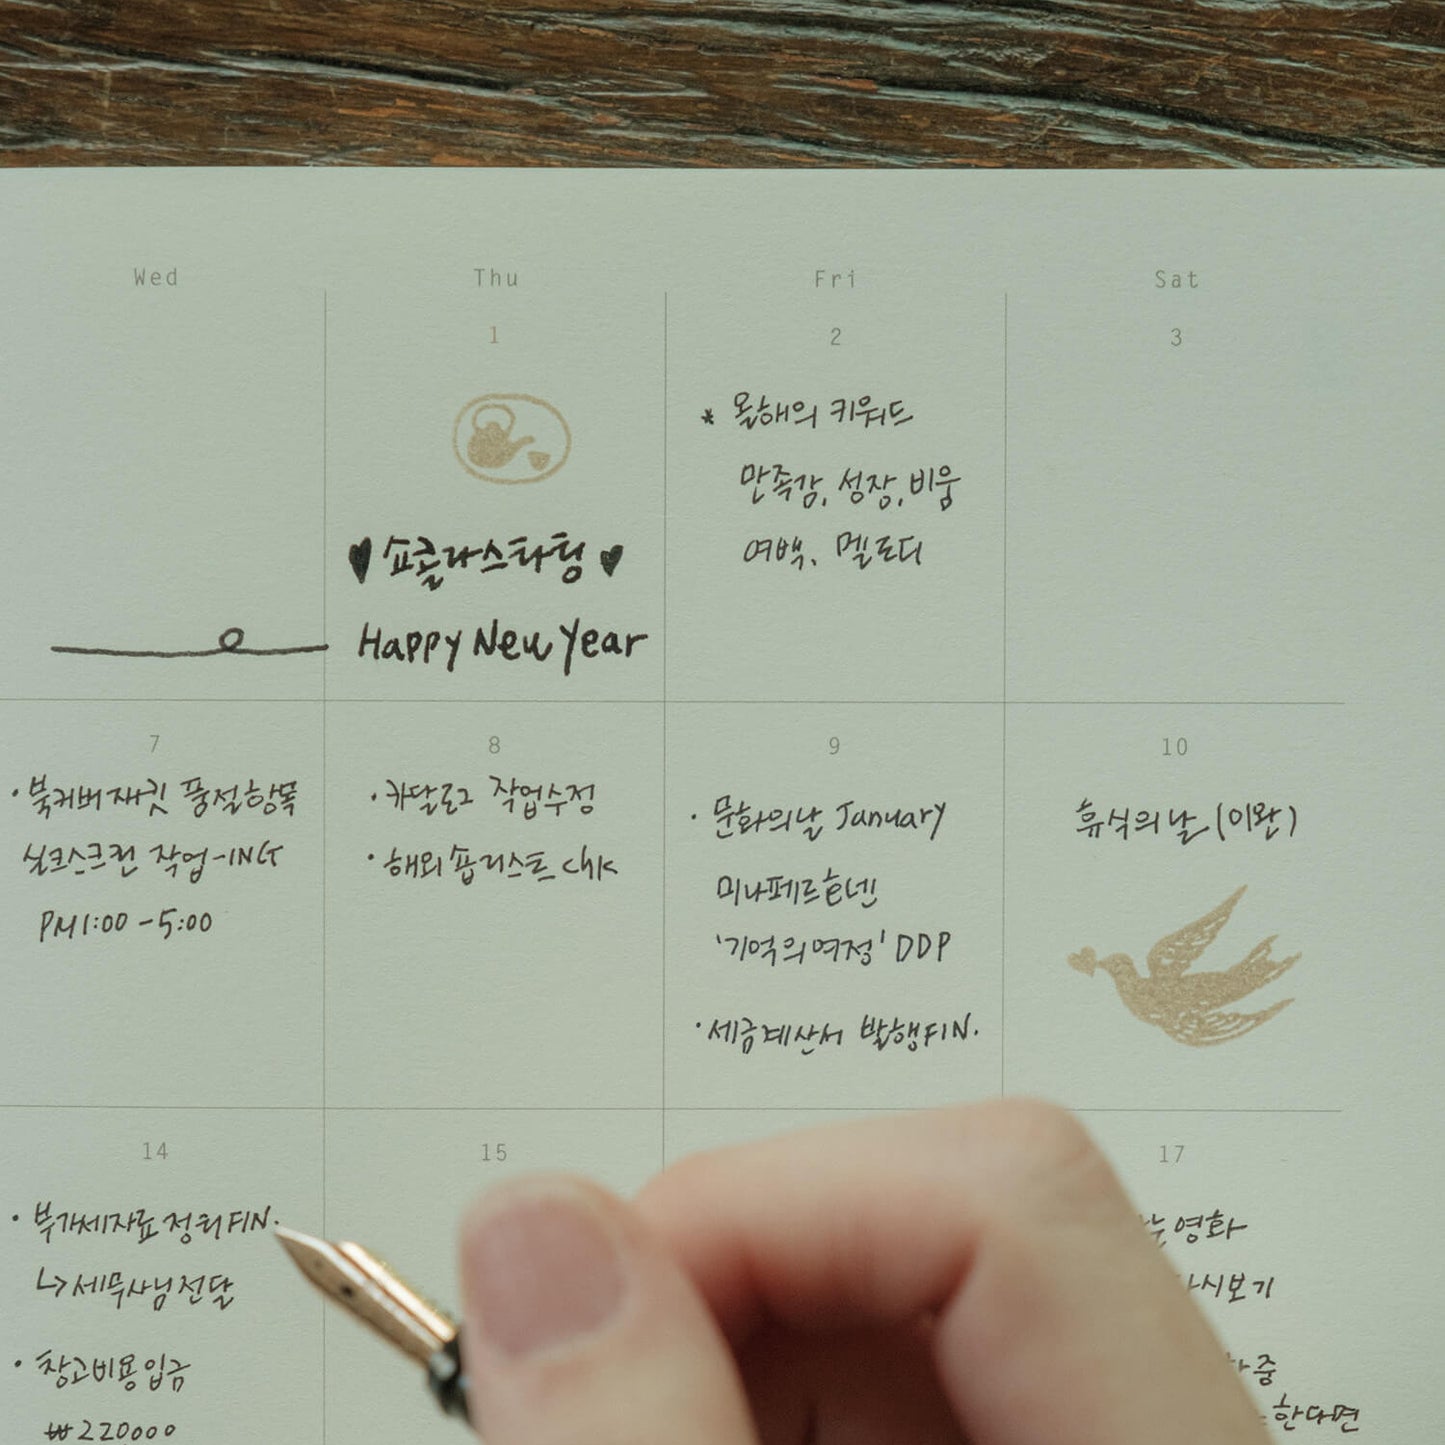 Wed Thu Fri Sat
1
♥쇼콜라스타팅♥
Happy New Year
2
* 올해의 키워드
만족감, 성장, 비움
여백, 멜로디
3
7
· 북커버재킷 풍절항목
실크스크린 작업-ING
PM 1:00 - 5:00
8
· 카달로그 작업수정
· 해외숍리스트 chk
9
· 문화의날 January
미나페르호넨
'기억의여정' DDP
· 세금계산서 발행FIN.
10
휴식의날 (이완)
14
· 부가세자료정리FIN.
↳세무사님전달
· 창고비용입금
₩220000
15
17
영화
시보기
중
한다면